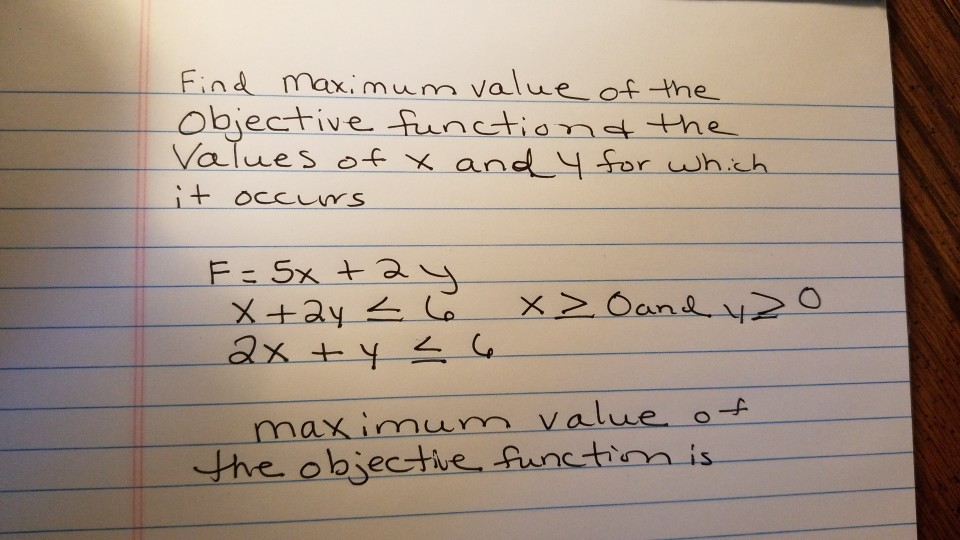 Find maximum value of the
Objective function & the
Values of x and y for which
it occurs
F = 5x + 2y
x + 2y ≤ 6 x ≥ 0 and y ≥ 0
2x + y ≤ 6
maximum value of
the objective function is